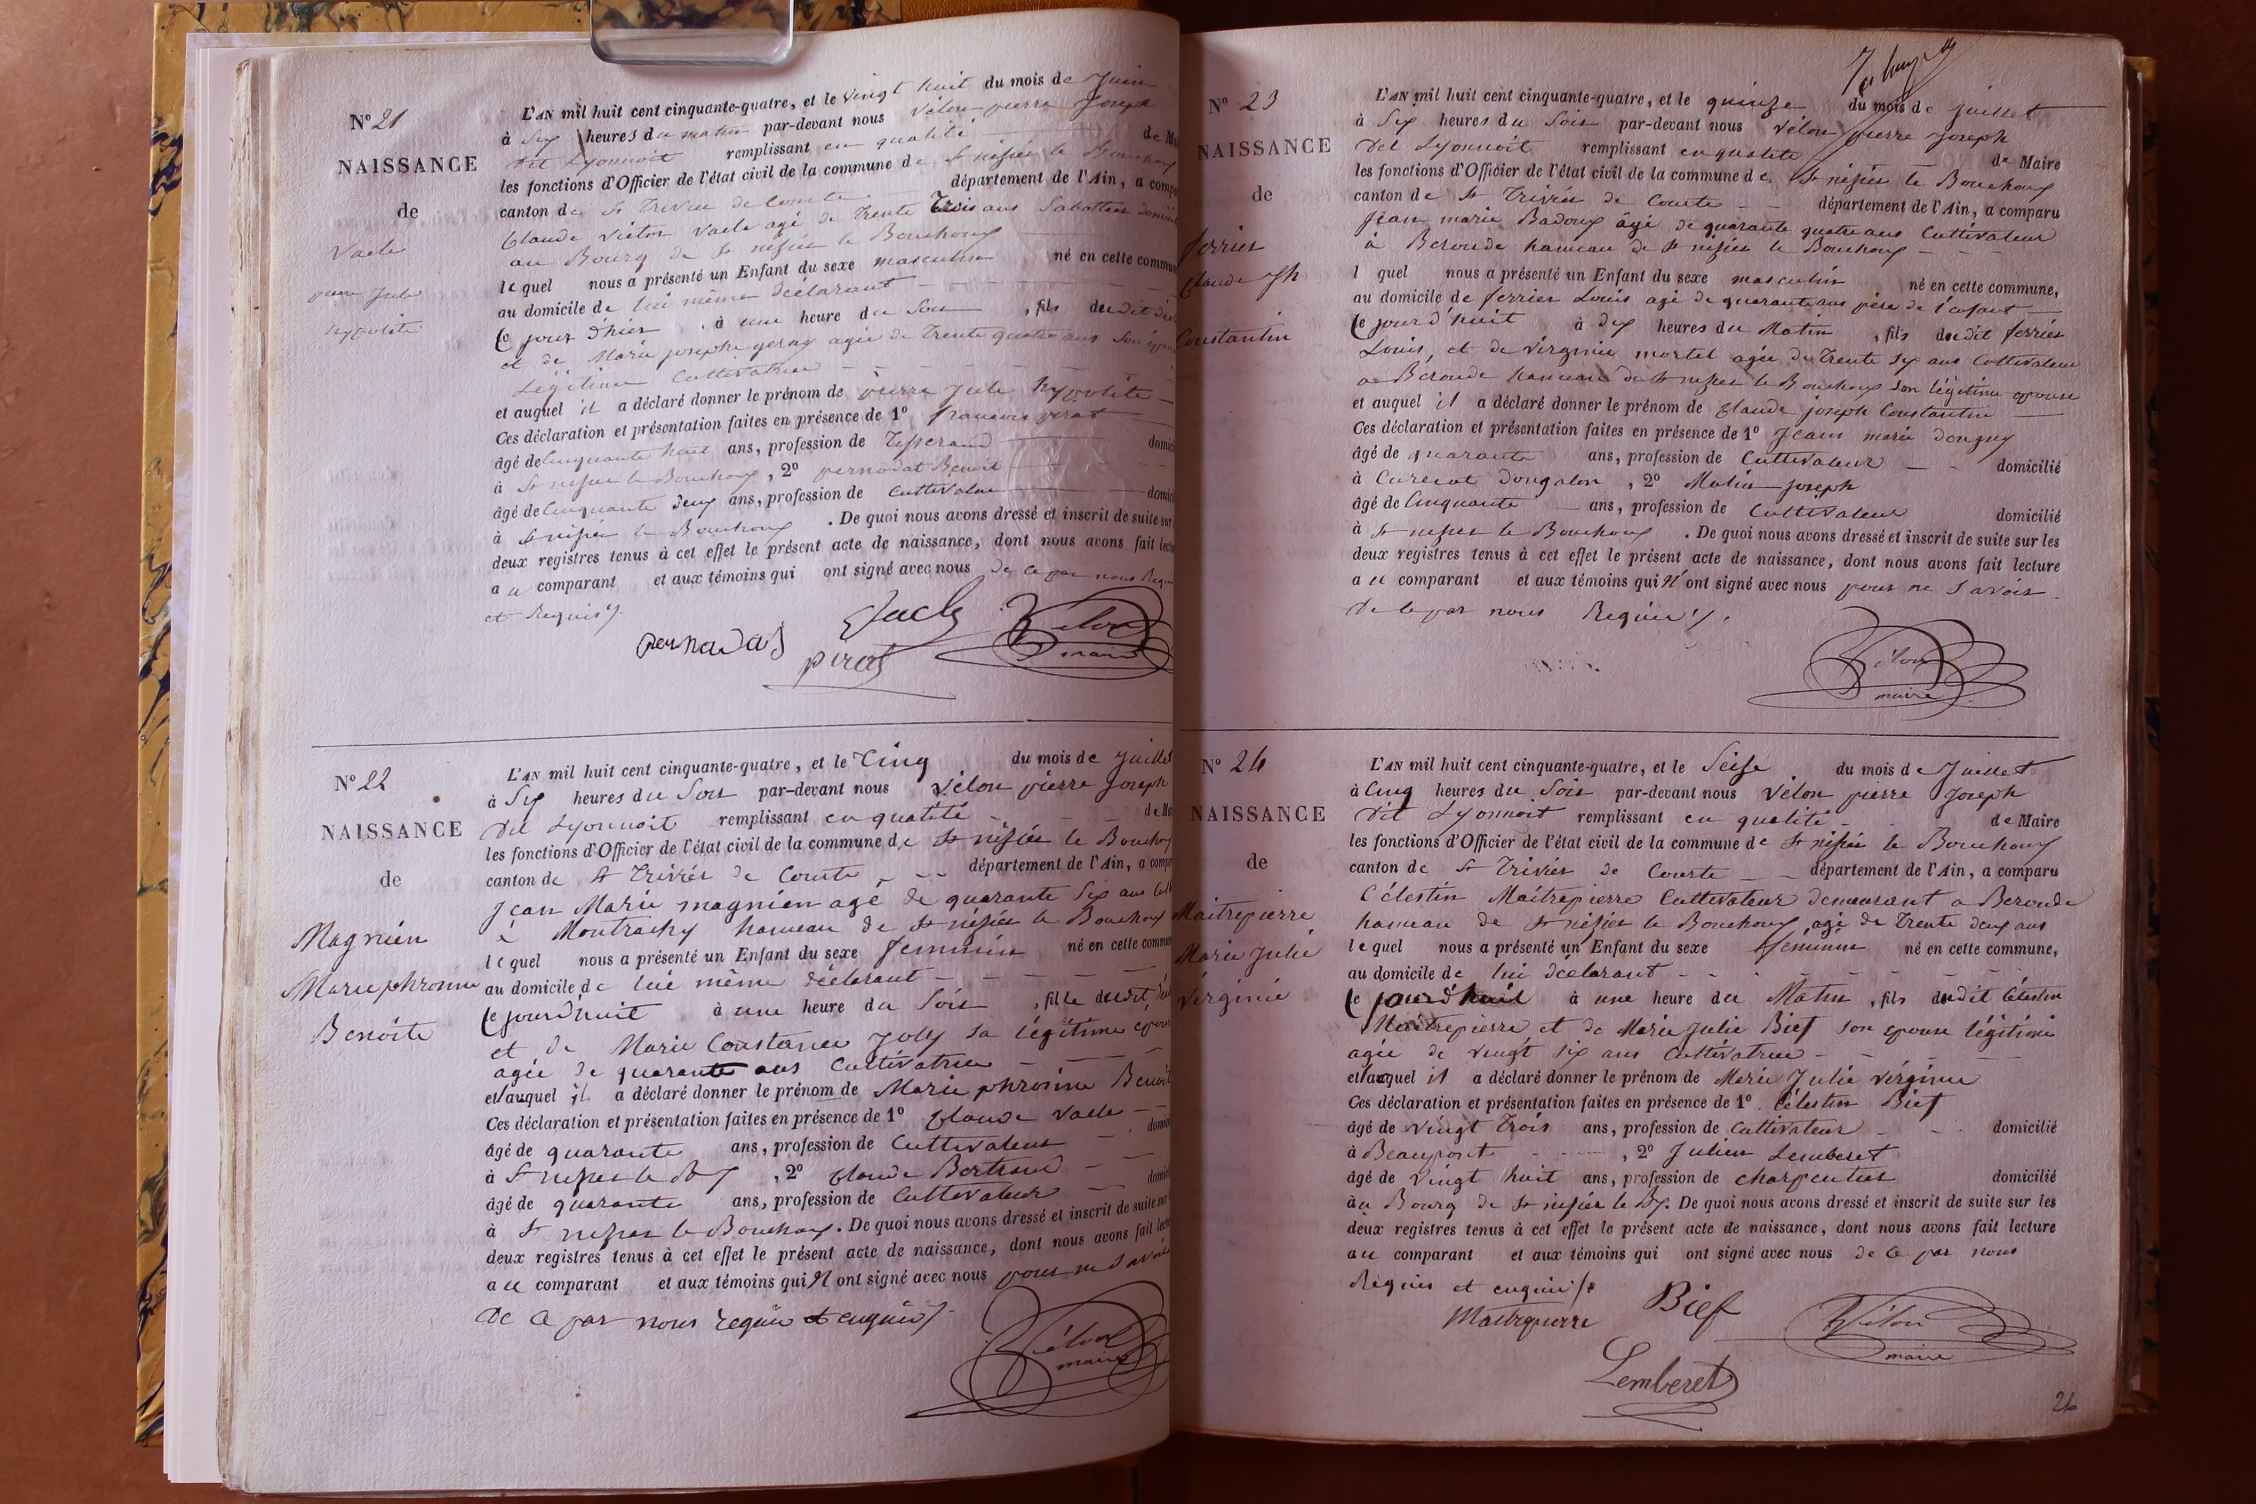 N° 21
NAISSANCE
de
Vacle
pierre Jule
hypolite
L'AN mil huit cent cinquante-quatre, et le vingt huit du mois de Juin
à Six heures du matin par-devant nous Vélon pierre Joseph
dit Lyonnoit remplissant en qualité de M
les fonctions d'Officier de l'état civil de la commune de St nisier le Bouchoux
canton de St Trivier de Courte département de l'Ain, a compa
Claude Victor Vacle agé de Trente Trois ans Sabottier domici
au Bourg de St nisier le Bouchoux
lequel nous a présenté un Enfant du sexe masculin né en cette commun
au domicile de lui même déclarant
Ce jour d'hier à une heure du Soir, fils dudit déc
et de Marie josephe agée de Trente quatre ans Son épou
Légitime Cultivatrice
et auquel il a déclaré donner le prénom de pierre Jule hypolite
Ces déclaration et présentation faites en présence de 1° francois perat
âgé de Cinquante huit ans, profession de Tisserand domici
à St nisier le Bouchoux, 2° pernodat Benoit
âgé de Cinquante deux ans, profession de Cultivateur domici
à St nisier le Bouchoux. De quoi nous avons dressé et inscrit de suite sur
deux registres tenus à cet effet le présent acte de naissance, dont nous avons fait lectu
au comparant et aux témoins qui ont signé avec nous de ce par nous Requi
et Requis
Vacle
Vélon
maire
pernadat
perat
N° 22
NAISSANCE
de
Magnien
Marie phrosine
Benoite
L'AN mil huit cent cinquante-quatre, et le Cinq du mois de Juillet
à Six heures du Soir par-devant nous Vélon pierre Joseph
dit Lyonnoit remplissant en qualité de Ma
les fonctions d'Officier de l'état civil de la commune de St nisier le Bouchoux
canton de St Trivier de Courte département de l'Ain, a compa
Jean Marie magnien agé de quarante Six ans Cult
à Montrachy hameau de St nisier le Bouchoux
lequel nous a présenté un Enfant du sexe feminin né en cette commun
au domicile de lui même déclarant
Ce jourd'huit à une heure du Soir, fille dudit déc
et de Marie Constance Joly sa légitime épou
agée de quarante ans Cultivatrice
et auquel il a déclaré donner le prénom de Marie phrosine Benoit
Ces déclaration et présentation faites en présence de 1° Claude Vacle
âgé de quarante ans, profession de Cultivateur domici
à St nisier le Bx, 2° Claude Bertrand
âgé de quarante ans, profession de Cultivateur domici
à St nisier le Bouchoux. De quoi nous avons dressé et inscrit de suite sur
deux registres tenus à cet effet le présent acte de naissance, dont nous avons fait lectu
au comparant et aux témoins qui N'ont signé avec nous pour ne Savoir
de ce par nous requis et enquis
Vélon
maire
N° 23
NAISSANCE
de
ferrier
Claude Jh
Constantin
L'AN mil huit cent cinquante-quatre, et le quinze du mois de juillet
à Six heures du Soir par-devant nous Vélon pierre Joseph
dit Lyonnoit remplissant en qualité de Maire
les fonctions d'Officier de l'état civil de la commune de St nisier le Bouchoux
canton de St Trivier de Courte département de l'Ain, a comparu
Jean marie Badoux âgé de quarante quatre ans Cultivateur
à Beronde hameau de St nisier le Bouchoux
lequel nous a présenté un Enfant du sexe masculin né en cette commune,
au domicile de ferrier Louis agé de quarante ans père de l'enfant
Ce jourd'huit à dix heures du Matin, fils dudit ferrier
Louis, et de Virginie mortel agée de Trente Six ans Cultivateur
a Beronde hameau de St nisier le Bouchoux son légitime epouse
et auquel il a déclaré donner le prénom de Claude joseph Constantin
Ces déclaration et présentation faites en présence de 1° Jean marie donguy
âgé de quarante ans, profession de Cultivateur domicilié
à Curciat dongalon, 2° Matin joseph
âgé de Cinquante ans, profession de Cultivateur domicilié
à St nisier le Bouchoux. De quoi nous avons dressé et inscrit de suite sur les
deux registres tenus à cet effet le présent acte de naissance, dont nous avons fait lecture
au comparant et aux témoins qui N'ont signé avec nous pour ne Savoir
de ce par nous Requis
Vélon
maire
N° 24
NAISSANCE
de
Maitrepierre
Marie Julie
Virginie
L'AN mil huit cent cinquante-quatre, et le Seise du mois de Juillet
à Cinq heures du Soir par-devant nous Vélon pierre Joseph
dit Lyonnoit remplissant en qualité de Maire
les fonctions d'Officier de l'état civil de la commune de St nisier le Bouchoux
canton de St Trivier de Courte département de l'Ain, a comparu
Célestin Maitrepierre Cultivateur demeurant a Beronde
hameau de St nisier le Bouchoux agé de Trente deux ans
lequel nous a présenté un Enfant du sexe feminin né en cette commune,
au domicile de lui déclarant
Ce jourd'huit à une heure du Matin, fils dudit Célestin
Maitrepierre et de Marie Julie Bief son epouse légitime
agée de vingt Six ans Cultivatrice
et auquel il a déclaré donner le prénom de Marie Julie Virginie
Ces déclaration et présentation faites en présence de 1° Célestin Bief
âgé de vingt Trois ans, profession de Cultivateur domicilié
à Beaupont, 2° Julien Lemberet
âgé de vingt huit ans, profession de charpentier domicilié
au Bourg de St nisier le Bx. De quoi nous avons dressé et inscrit de suite sur les
deux registres tenus à cet effet le présent acte de naissance, dont nous avons fait lecture
au comparant et aux témoins qui ont signé avec nous de ce par nous
Requis et enquis
Maitrepierre
Bief
Vélon
maire
Lemberet